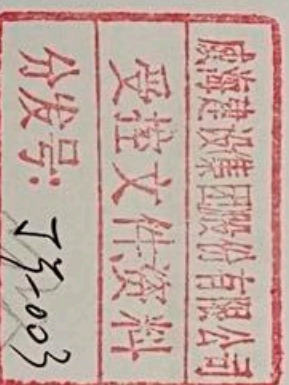 威海建设集团股份有限公司
受控文件资料
分发号：JS-003